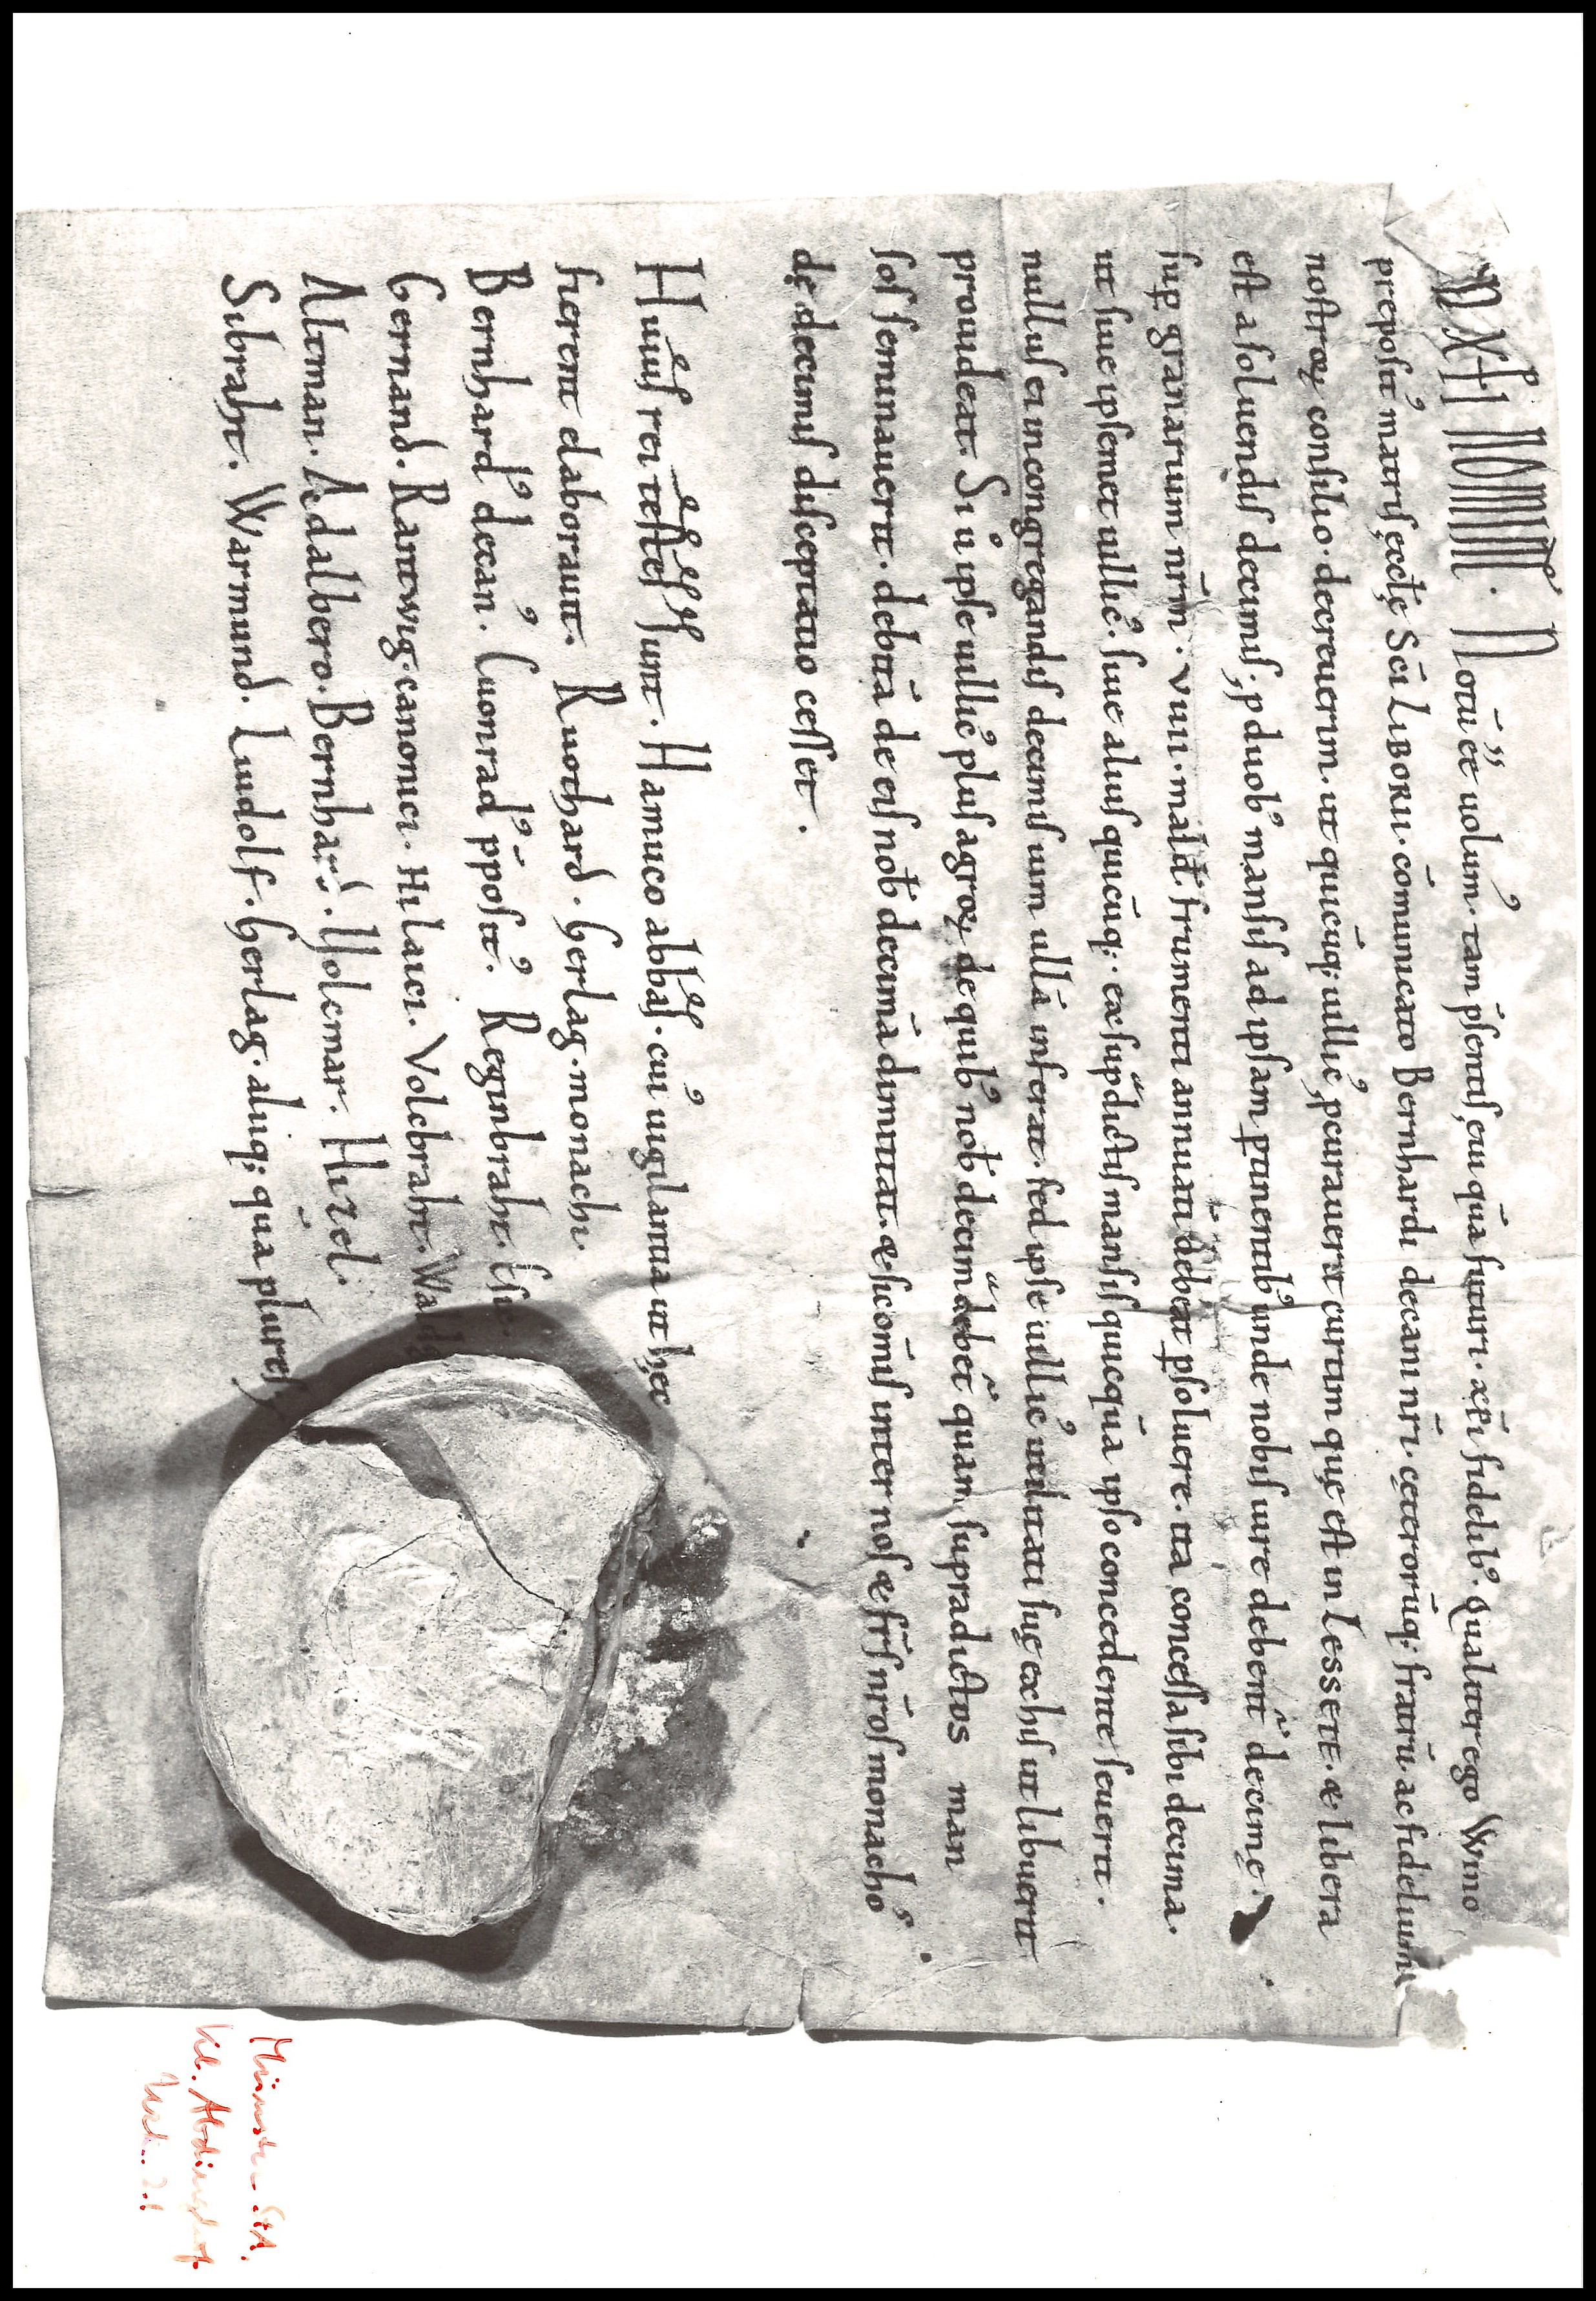 IN XPI NOMINE. Notū ēē uolum᷒. tam p̄sentib; quā futuri. xp̄i fidelib᷒. Qualiter ego Wino
preposit᷒ matris ęccl̄ę Sc̄i LIBORII. cōmunicato Bernhardi decani nr̄i. cęterorūq; fratrū ac fidelium
nostroꝝ consilio. decreuerim. ut quicūq; uillic᷒ ꝓcurauerit curtim quę est in LESSETE. & libera
est a soluendis decimis; ꝓ duob᷒ mansis ad ipsam ꝑtinentib᷒ unde nobis iure debent᷑ decimę
suꝑ granarium nr̄m. VIII. malđ frumenti annuati debeat ꝑsoluere. ita concessa sibi decima.
ut siue ipsemet uillic᷒. siue alius quicūq;. ex sup᷑dictis mansis quicquā ipso concedente seuerit.
nullus ei in congregandis decimis uim ullā inferat. sed ipse uillic᷒ utilitati suę ex his ut libuerit
prouideat. Si ů ipse uillic᷒ plus agroꝝ de quib᷒ nob̄ decima debet᷑ quam supradictos man
sos seminauerit. debitā de eis nob̄ decimā dimittat. & sic om̄is inter nos & fr̄s nr̄os monacho᷒
dę decimis disceptatio cesset.
Huius rei testes sunt. Hamuco abbas. cui᷒ uigilantia ut hęc
fierent elaborauit. Ruothard. Gerlag. monachi.
Bernhard᷒ decan᷒. Cuonrad᷒ p̄posit᷒. Reginbraht.
Gernand. Rantwig. canonici. Hi laici. Volcbraht.
Altman. Adalbero. Bernhard. Uolcmar. Hizel.
Sibraht. Warmund. Liudolf. Gerlag. aliiq; quā plures
Münster StA.
Kl. Abdinghof
Urk. 21